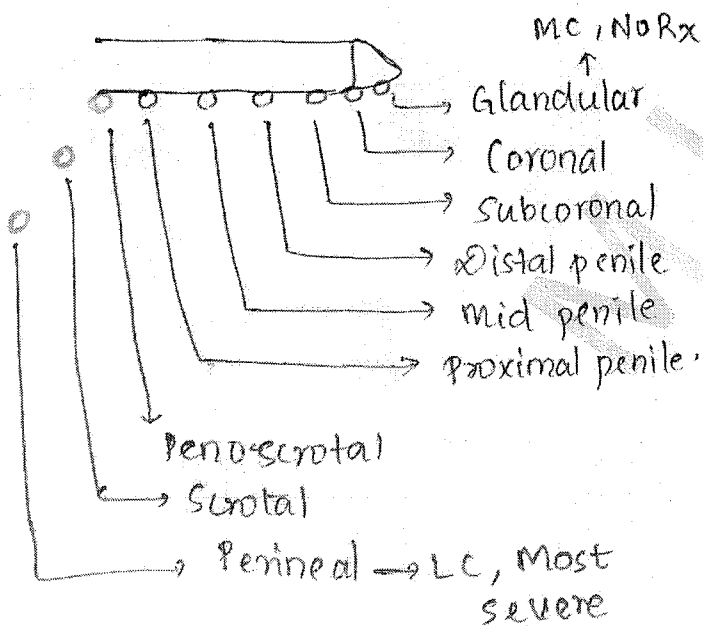 MC, No Rx
↑
Glandular
Coronal
Subcoronal
Distal penile
Mid penile
Proximal penile.
Penoscrotal
Scrotal
Perineal → LC, Most
severe